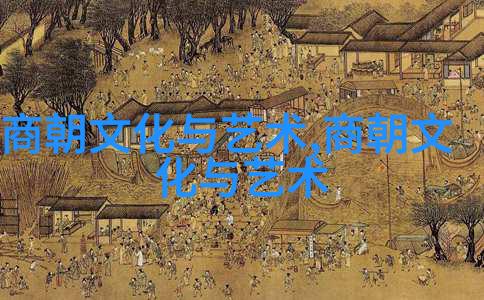 商朝文化与艺术,商朝文
化与艺术